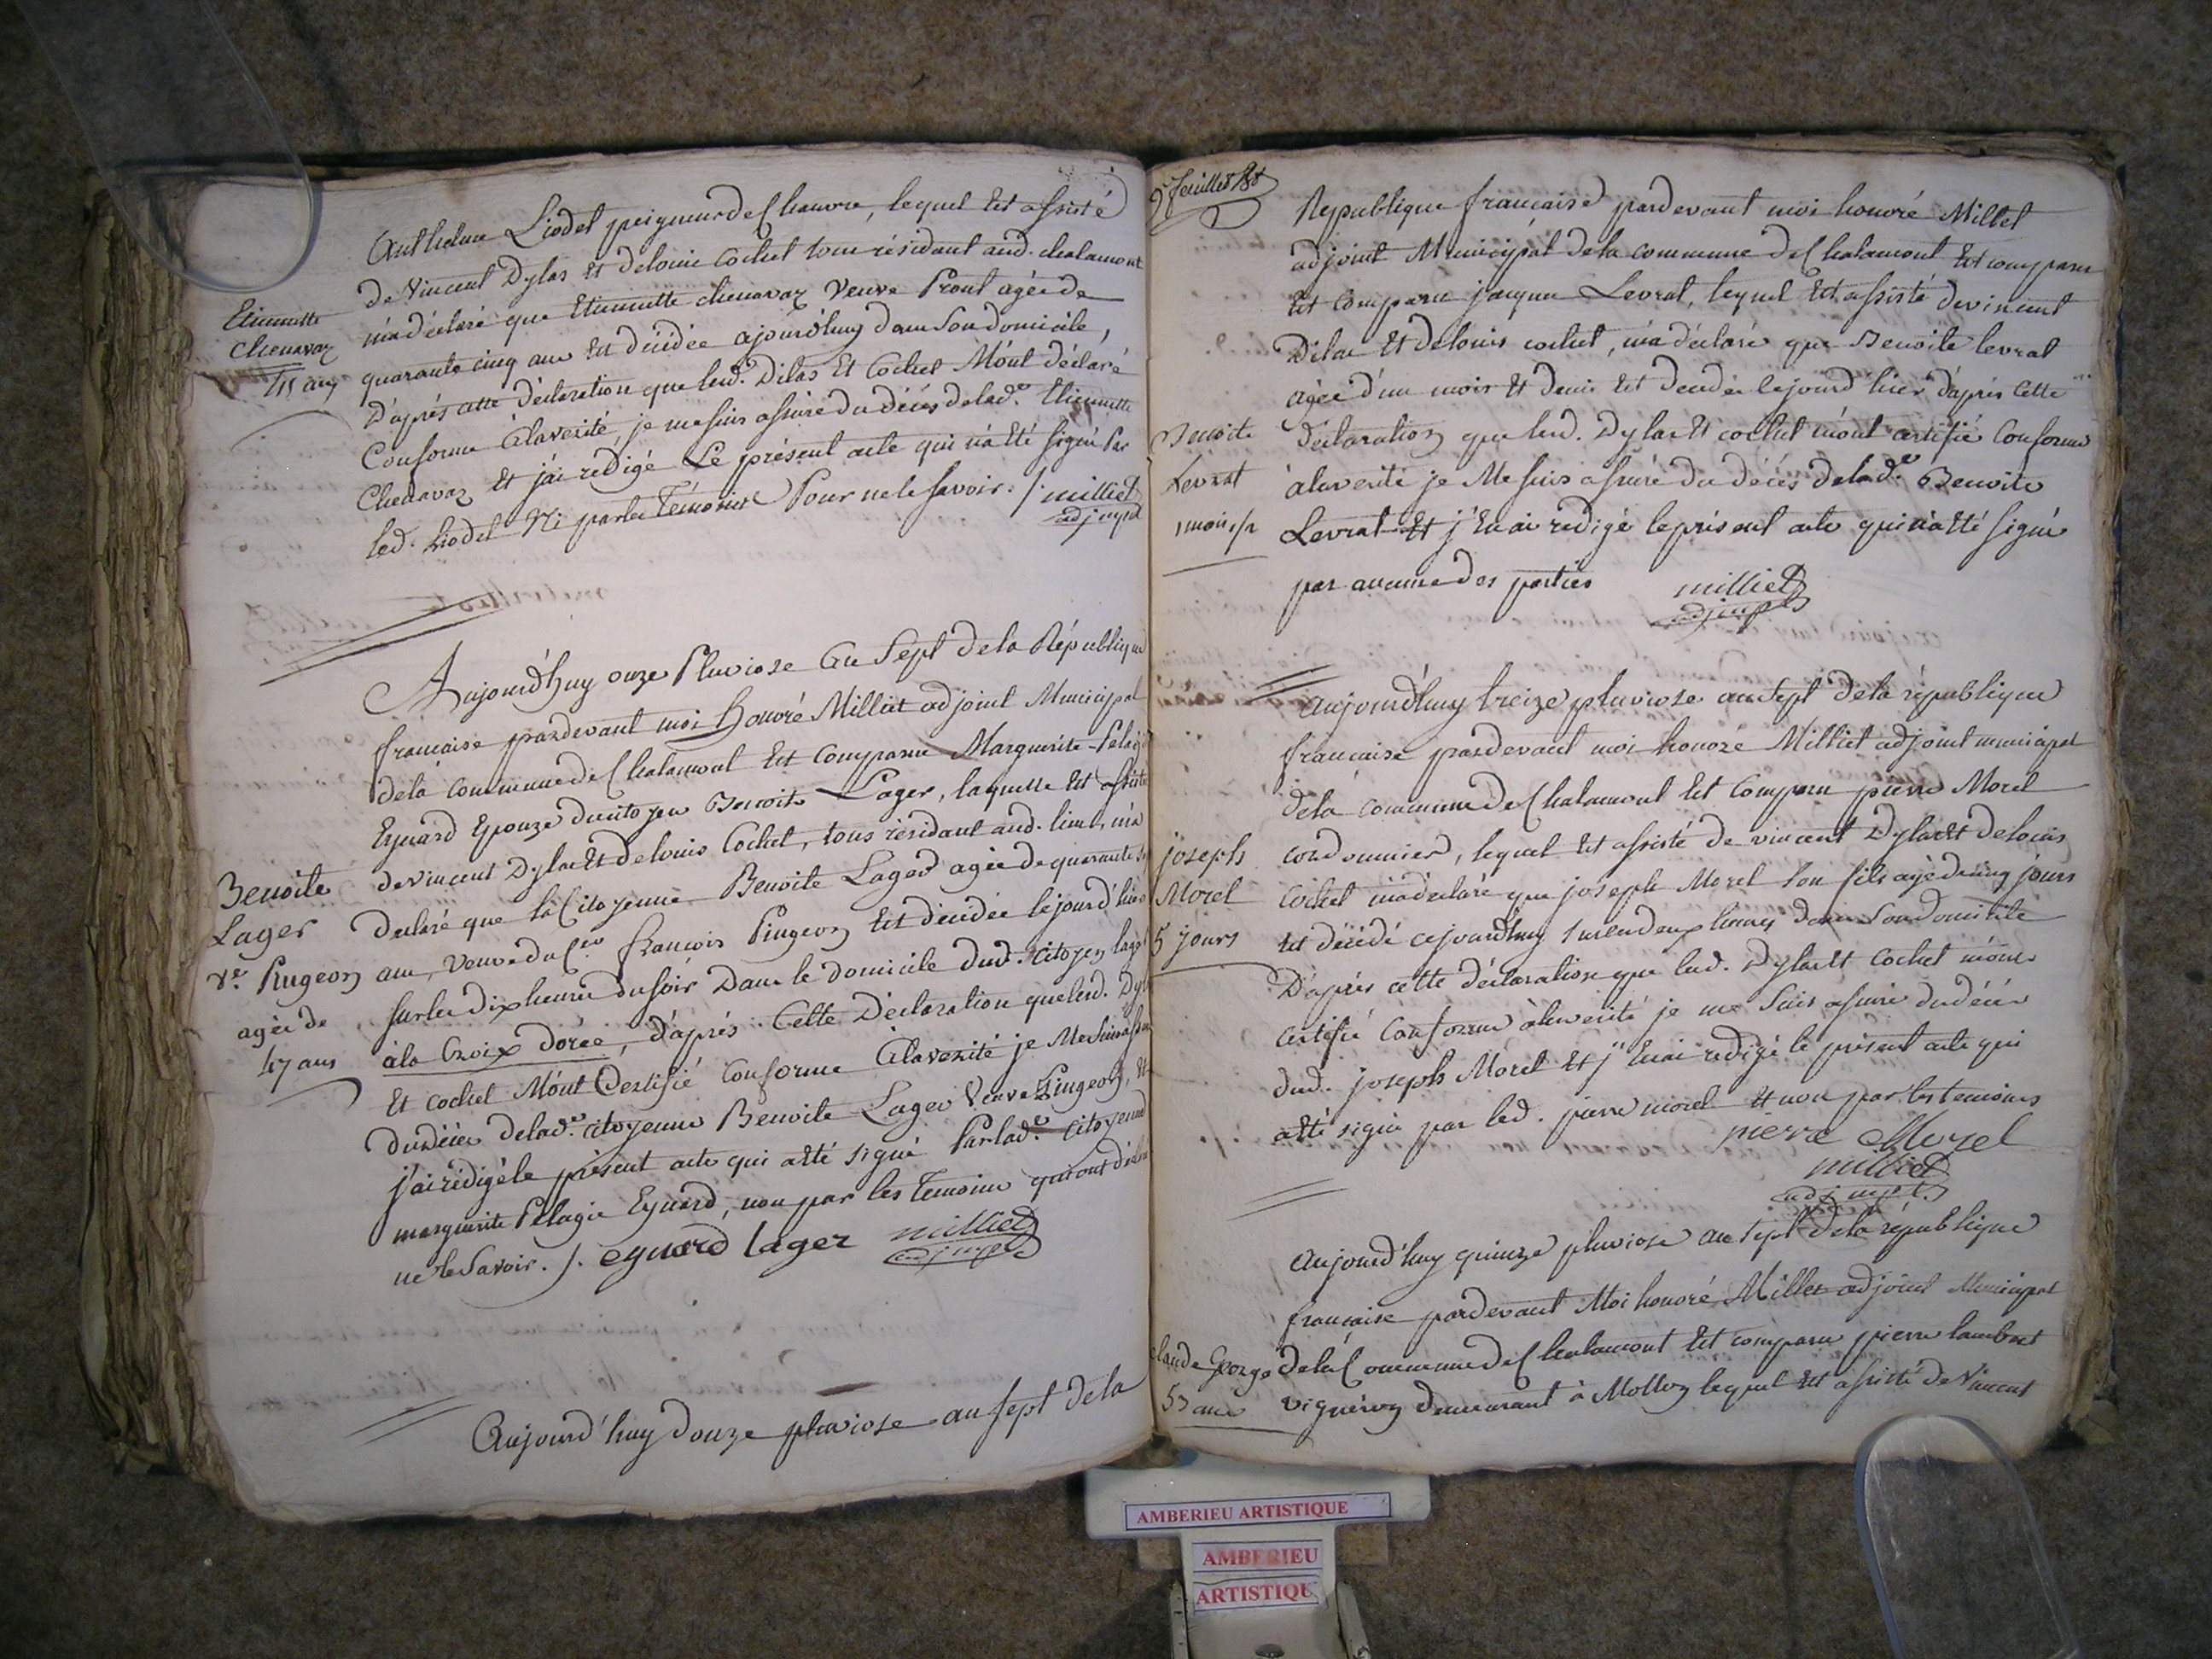 Anthelme Liodet peigneur de Chanvre, lequel Est assisté
de Vincent Dylas Et de Louis Cochet tous résidant aud. chalamont
Etiennette
Chenavaz
45 ans
m'a déclaré que Etiennette chenavaz Veuve Prout agée de
quarante cinq ans Est décédée ajourd'huy dans Son domicile,
D'après cette déclaration que lesd. Dilas Et Cochet M'ont déclaré
Conforme à la verité, je me suis assuré du décès de lad.e Etiennette
Chenavaz Et j'ai redigé Le présent acte qui n'a Eté signé Par
led. Liodet Ni par les Temoins Pour ne le savoir. /. milliet
adj mpal
Aujourd'huy onze Pluviose an Sept de la République
francaise pardevant moi Honoré Milliet adjoint Municipal
de la Commune de Chalamont Est Comparue Marguerite Pelagie
Eynard Epouze du citoyen Benoit Lager, laquelle Est assistée
de Vincent Dylas Et de Louis Cochet, tous résidant aud. lieu, m'a
Benoite
Lager
Ve. Pingeon
agée de
47 ans
déclaré que la Citoyenne Benoite Lager agée de quarante
ans, Veuve du Cen. francois Pingeon Est décédée le jour d'hier
sur les dix heures du soir Dans le domicile dud. citoyen lager
à la Croix dorée, d'après Cette Déclaration que lesd. Dylas
Et cochet M'ont Certifié Conforme à la verité je Me suis assuré
du décès de lad.e citoyenne Benoite Lager Veuve Pingeon, Et
j'ai rédigé le présent acte qui a Eté signé Par lad.e Citoyenne
marguerite Pélagie Eynard, non par les Temoins qui ont déclaré
ne le Savoir. /. eynard lager milliet
adj mpal
Aujourd'huy douze pluviose an sept de la
Republique francaise pardevant moi honoré Millet
adjoint Municipal de la commune de Chalamont Est comparu
Est Comparu jacques Levrat, lequel Est assisté de vincent
Dilas Et de louis cochet, m'a déclaré que Benoite levrat
agée d'un mois Et demi Est décédée le jour d'hier d'après Cette
Benoite
Levrat
1 mois 1/2
déclaration que lesd. Dylas Et cochet m'ont certifié Conforme
à la verité je Me suis assuré du décès de lad.e Benoite
Levrat Et j'En ai redigé le présent acte qui n'a Eté signé
par aucune des parties milliet
adj mpal
aujourd'huy treize pluviose an sept de la république
francaise pardevant moi honoré Milliet adjoint municipal
de la commune de Chalamont Est Comparu pierre Morel
joseph
Morel
5 jours
cordonnier, lequel Est assisté de vincent Dylas Et de louis
Cochet m'a déclaré que joseph Morel son fils agé de cinq jours
Est décédé cejourd'huy sur les deux heures dans Son domicile
D'après cette déclaration que lesd. Dylas Et Cochet m'ont
certifié Conforme à la verité je me suis assuré du décès
dud. joseph Morel Et j'En ai redigé le présent acte qui
a Eté signé par led. pierre morel Et non par les temoins
pierre Morel
milliet
adj mpal
Aujourd'huy quinze pluviose an sept de la république
francaise pardevant Moi honoré Millet adjoint Municipal
claude George
53 ans
de la Commune de Chalamont Est comparu pierre lambert
vigneron demeurant à Mollon lequel Est assisté de Vincent
AMBERIEU ARTISTIQUE
AMBERIEU
ARTISTIQU